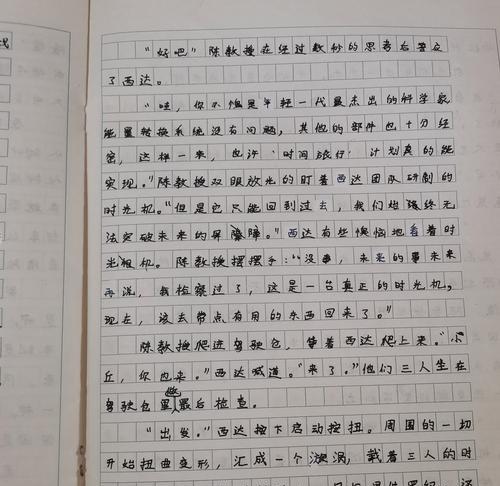 “好吧”陈教授在经过数秒的思考后答应
了西达。
“哇,你不愧是年轻一代最杰出的科学家
能量转换系统没有问题,其他的部件也十分经
密,这样一来,也许‘时间旅行’计划真的能
实现。”陈教授双眼放光的盯着西达团队研制的
时光机。“但是它只能回到过去,我们始终无
法突破未来的屏障。”西达有些懊恼地看着时
光机。陈教授摆摆手:“没事,未来的事未来
再说,我检察过了,这是一台真正的时光机,
现在,该去带点有用的东西回来了。”
陈教授爬进驾驶仓,等着西达爬上来。“小
丘,你也来。”西达喊道。“来了。”他们三人坐在
驾驶仓里做最后检查。
“出发。”西达按下启动按扭。周围的一切
开始扭曲变形,汇成一个漩涡,载着三人的时